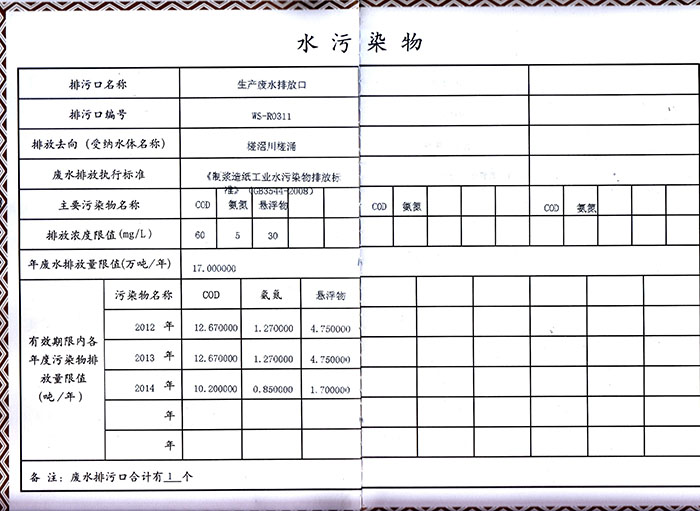 水污染物
排污口名称 生产废水排放口
排污口编号 WS-R0311
排放去向（受纳水体名称） 槎滘川槎涌
废水排放执行标准 《制浆造纸工业水污染物排放标
准》（GB3544-2008）
主要污染物名称 COD 氨氮 悬浮物 COD 氨氮 COD 氨氮
排放浓度限值(mg/L) 60 5 30
年废水排放量限值(万吨/年) 17.000000
有效期限内各
年度污染物排
放量限值
(吨/年)
污染物名称 COD 氨氮 悬浮物
2012 年 12.670000 1.270000 4.750000
2013 年 12.670000 1.270000 4.750000
2014 年 10.200000 0.850000 1.700000
年
年
备 注：废水排污口合计有1个